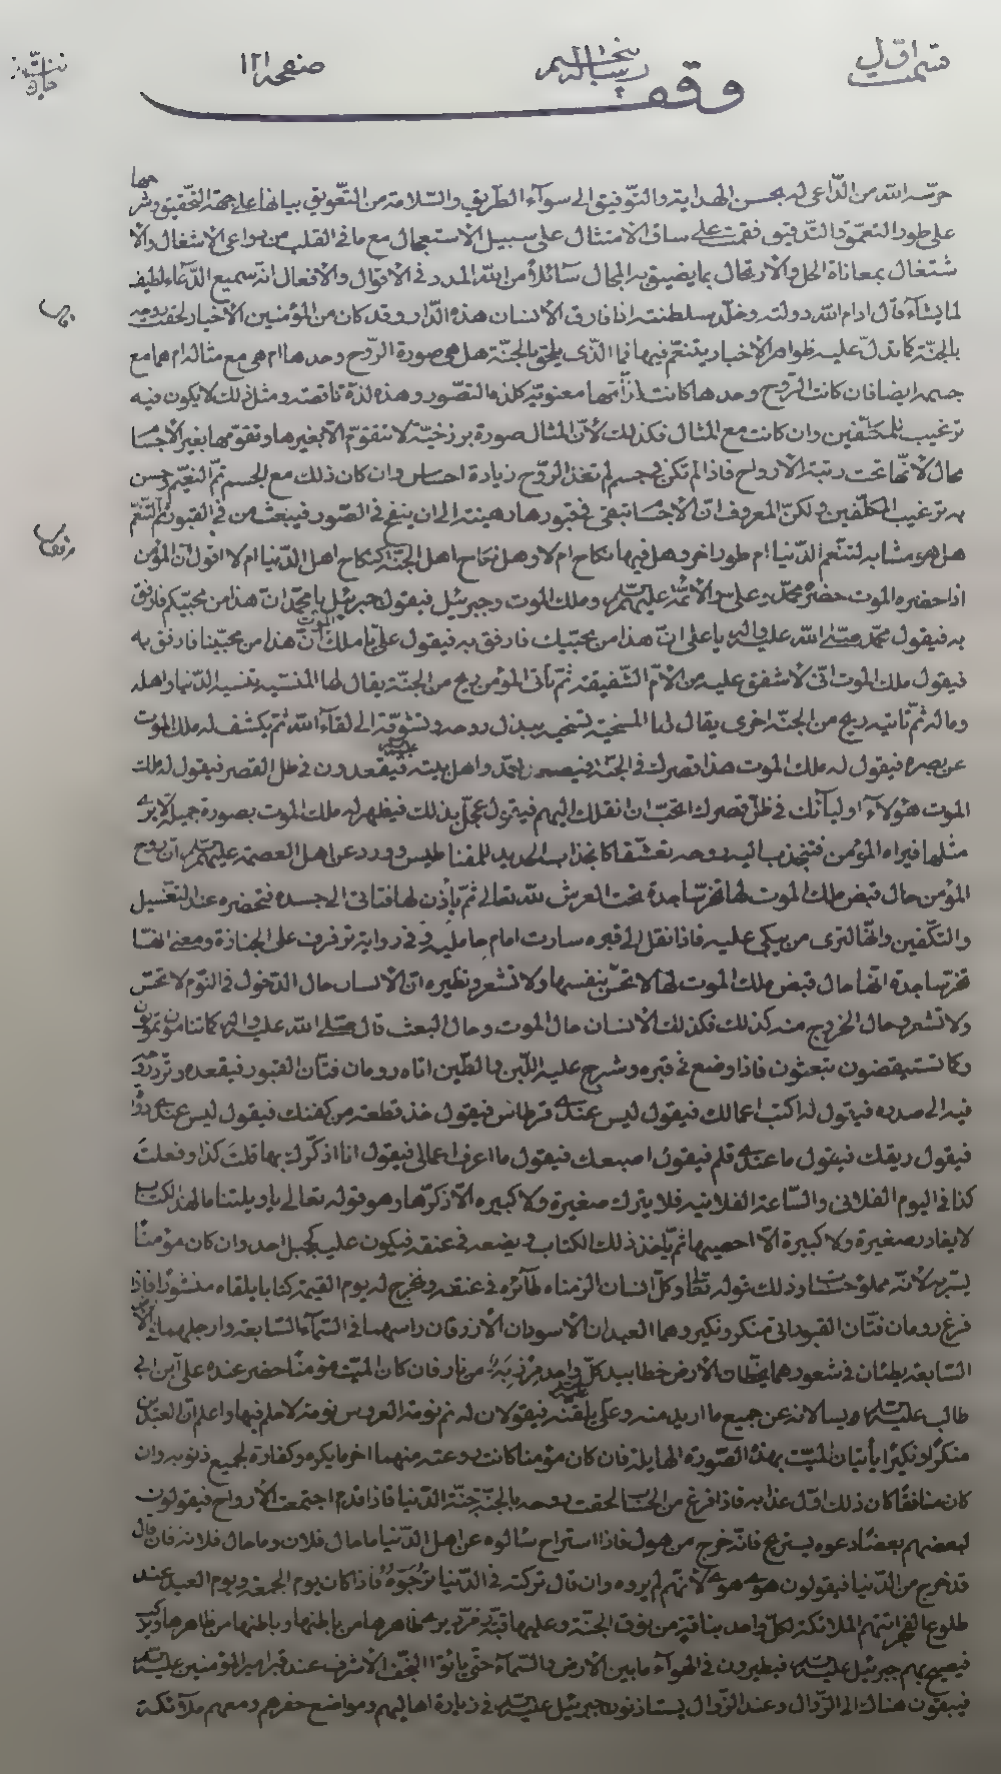 قسمت اوّل
صفحه ١٢١
وقف
حرسه الله من الدّاعی له بحسن الهدایة والتّوفیق الی سوآء الطّریق والسّلامة من التّعویق بیانها علی جهة التّحقیق وشرحها
علی طور التعمّق والتّدقیق فقمت علی ساق الامتثال علی سبیل الاستعجال مع ما فی القلب من دواعی الاشغال والا
شتغال بمعاناة الحل والارتحال بما یضیق به المجال سآئلاً من الله المدد فی الاقوال والافعال انّه سمیع الدّعآء لطیف
لما یشآء قال ادام الله دولته وخلّد سلطنته اذا فارق الانسان هذه الدّار وقد کان من المؤمنین الأخیار لحقت روحه
بالجنّة کما تدلّ علیه ظواهر الأخبار یتنعّم فیها فما الّذی یلحق بالجنّة هل هی صورة الرّوح وحدها ام هی مع مثاله ام هما مع
جسمه ایضا فان کانت الرّوح وحدها کانت لذّتها معنویّة کلذة التصّور وهذه لذّة ناقصة ومثل ذلک لا یکون فیه
ترغیب للمکلّفین وان کانت مع المثال فکذلک لأنّ المثال صورة برزخیّة لا تتقوّم الّا بغیرها وتقوّمها بغیر الاجسا
محال لأنّها تحت رتبة الأرواح فاذا لم تکن فی جسم لم تفد الرّوح زیادة احساس وان کان ذلک مع الجسم تمّ النعیم وحسن
به ترغیب المکلّفین ولکنّ المعروف انّ الأجسا تبقی فی قبورها رهینة الی ان ینفخ فی الصّور فیبعث من فی القبور ثم التنعّم
هل هو مشابه لتنعّم الدّنیا ام طور اخر وهل فیها نکاح ام لا وهل نکاح اهل الجنّة کنکاح اهل الدّنیا ام لا اقول انّ المؤمن
اذا حضره الموت حضره محمّد وعلی والأئمّة علیهم السّلم وملک الموت وجبرئیل فیقول جبرئیل یا محمّد انّ هذا من محبیکم فارفق
به فیقول محمّد صلّی الله علیه واله یا علی انّ هذا من محبیک فارفق به فیقول علیّ یا ملک الموت انّ هذا من محبّینا فارفق به
فیقول ملک الموت انّی لأشفق علیه من الأمّ الشّفیقة ثمّ تأتی المؤمن ریح من الجنّة یقال لها المنسیة تنسیه الدّنیا واهله
وماله ثمّ تاتیه ریح من الجنّة اخری یقال لها المسخیة تسخیه ببذل روحه وتشوّقه الی لقآء الله ثم یکشف له ملک الموت
عن بصره فیقول له ملک الموت هذا قصرک فی الجنّة فیبصر محمّد واهل بیته علیهم السلم فیقعدون فی ظل القصر فیقول له ملک
الموت هؤلآء اولیآئک فی ظلّ قصرک اتحبّ ان انقلک الیهم فیقول عجّل بذلک فیظهر له ملک الموت بصورة جمیلة لا یری
مثلها فیراه المؤمن فتنجذب الیه روحه تعشّقا کانجذاب الحدید للمغناطیس وورد عن اهل العصمة علیهم السّلم انّ روح
المؤمن حال قبض ملک الموت لها تخرّ ساجدة تحت العرش لله تعالی ثمّ یأذن لها فتاتی الی جسده فتحضره عند التغسیل
والتکّفین وانّها لتری من یبکی علیه فاذا نقل الی قبره سارت امام حاملیه وفی روایة ترفرف علی الجنازة ومعنی انّها
تخرّ ساجدة انّها حال قبض ملک الموت لها لا تحسّ بنفسها ولا تشعر ونظیره انّ الانسان حال الدّخول فی النّوم لا تحسّ
ولا تشعر وحال الخروج منه کذلک فکذلک الانسان حال الموت وحال البعث قال صلّی الله علیه واله کما تنامون تموتون
وکما تستیقضون تبعثون فاذا وضع فی قبره وشرج علیه اللّبن والطّین اتاه رومان فتّان القبور فیقعده وتردّ روحه
فیه الی صدره فیقول له اکتب اعمالک فیقول لیس عندی قرطاس فیقول خذ قطعة من کفنک فیقول لیس عندی دواة
فیقول ریقک فیقول ما عندی قلم فیقول اصبعک فیقول ما اعرف اعمالی فیقول انا اذکّرک بها قلت کذا وفعلت
کذا فی الیوم الفلانی والسّاعة الفلانیة فلا یترک صغیرة ولا کبیرة الّا ذکّرها وهو قوله تعالی یا ویلتنا ما لهذا الکتاب
لا یغادر صغیرة ولا کبیرة الّا احصیها ثم یأخذ ذلک الکتاب ویضعه فی عنقه فیکون علیه کجبل احد وان کان مؤمنًا
یسّر به لأنّه مملو حسنات وذلک قوله تعالی وکلّ انسان الزمناه طآئره فی عنقه ونخرج له یوم القیمة کتابا یلقاه منشورًا فاذا
فرغ رومان فتّان القبور اتی منکر ونکیر وهما العبدان الأسودان الأزرقان راسهما فی السّمآء السّابعة وارجلهما فی الأرض
السّابعة یطئان فی شعورهما یخطّان الارض خطا بید کلّ واحد مرزبة من نار فان کان المیّت مؤمنًا حضر عنده علی ابن ابی
طالب علیه السّلم ویسألانه عن جمیع ما ارید منه وعلیّ علیه السلم یلقّنه فیقولان له نم نومة العروس نومة لا حلم فیها واعلم انّ العبدین
منکرًا ونکیرًا یأتیان المیّت بهذه الصّورة الهایلة فان کان مؤمنا کانت روعته منهما اخر ما یکره وکفارة لجمیع ذنوبه وان
کان منافقًا کان ذلک اوّل عذابه فاذا فرغ من الحساب لحقت روحه بالجنّة جنّة الدّنیا فاذا قدم اجتمعت الأرواح فیقولون
لبعضهم بعضًا دعوه یستریح فانّه خرج من هول فاذا استراح سألوه عن اهل الدّنیا ما حال فلان وما حال فلانة فان قال
قد خرج من الدّنیا فیقولون هوی هوی لأنّهم لم یروه وان قال ترکته فی الدّنیا ترجّوه فاذا کان یوم الجمعة ویوم العید عند
طلوع الفجر اتتهم الملائکة لکلّ واحد بناقة من نوق الجنّة وعلیها قبّة یری ظاهرها من باطنها وباطنها من ظاهرها فیرکب
فیصیح بهم جبرئیل علیه السّلم فیطیرون فی الهوآء ما بین الأرض والسّمآء حتّی یأتوا النّجف الأشرف عند قبر امیر المؤمنین علیه السّلم
فیبقون هناک الی الزّوال وعند الزّوال یستاذنون جبرئیل علیه السّلم فی زیارة اهالیهم ومواضع حفرهم ومعهم ملآئکة